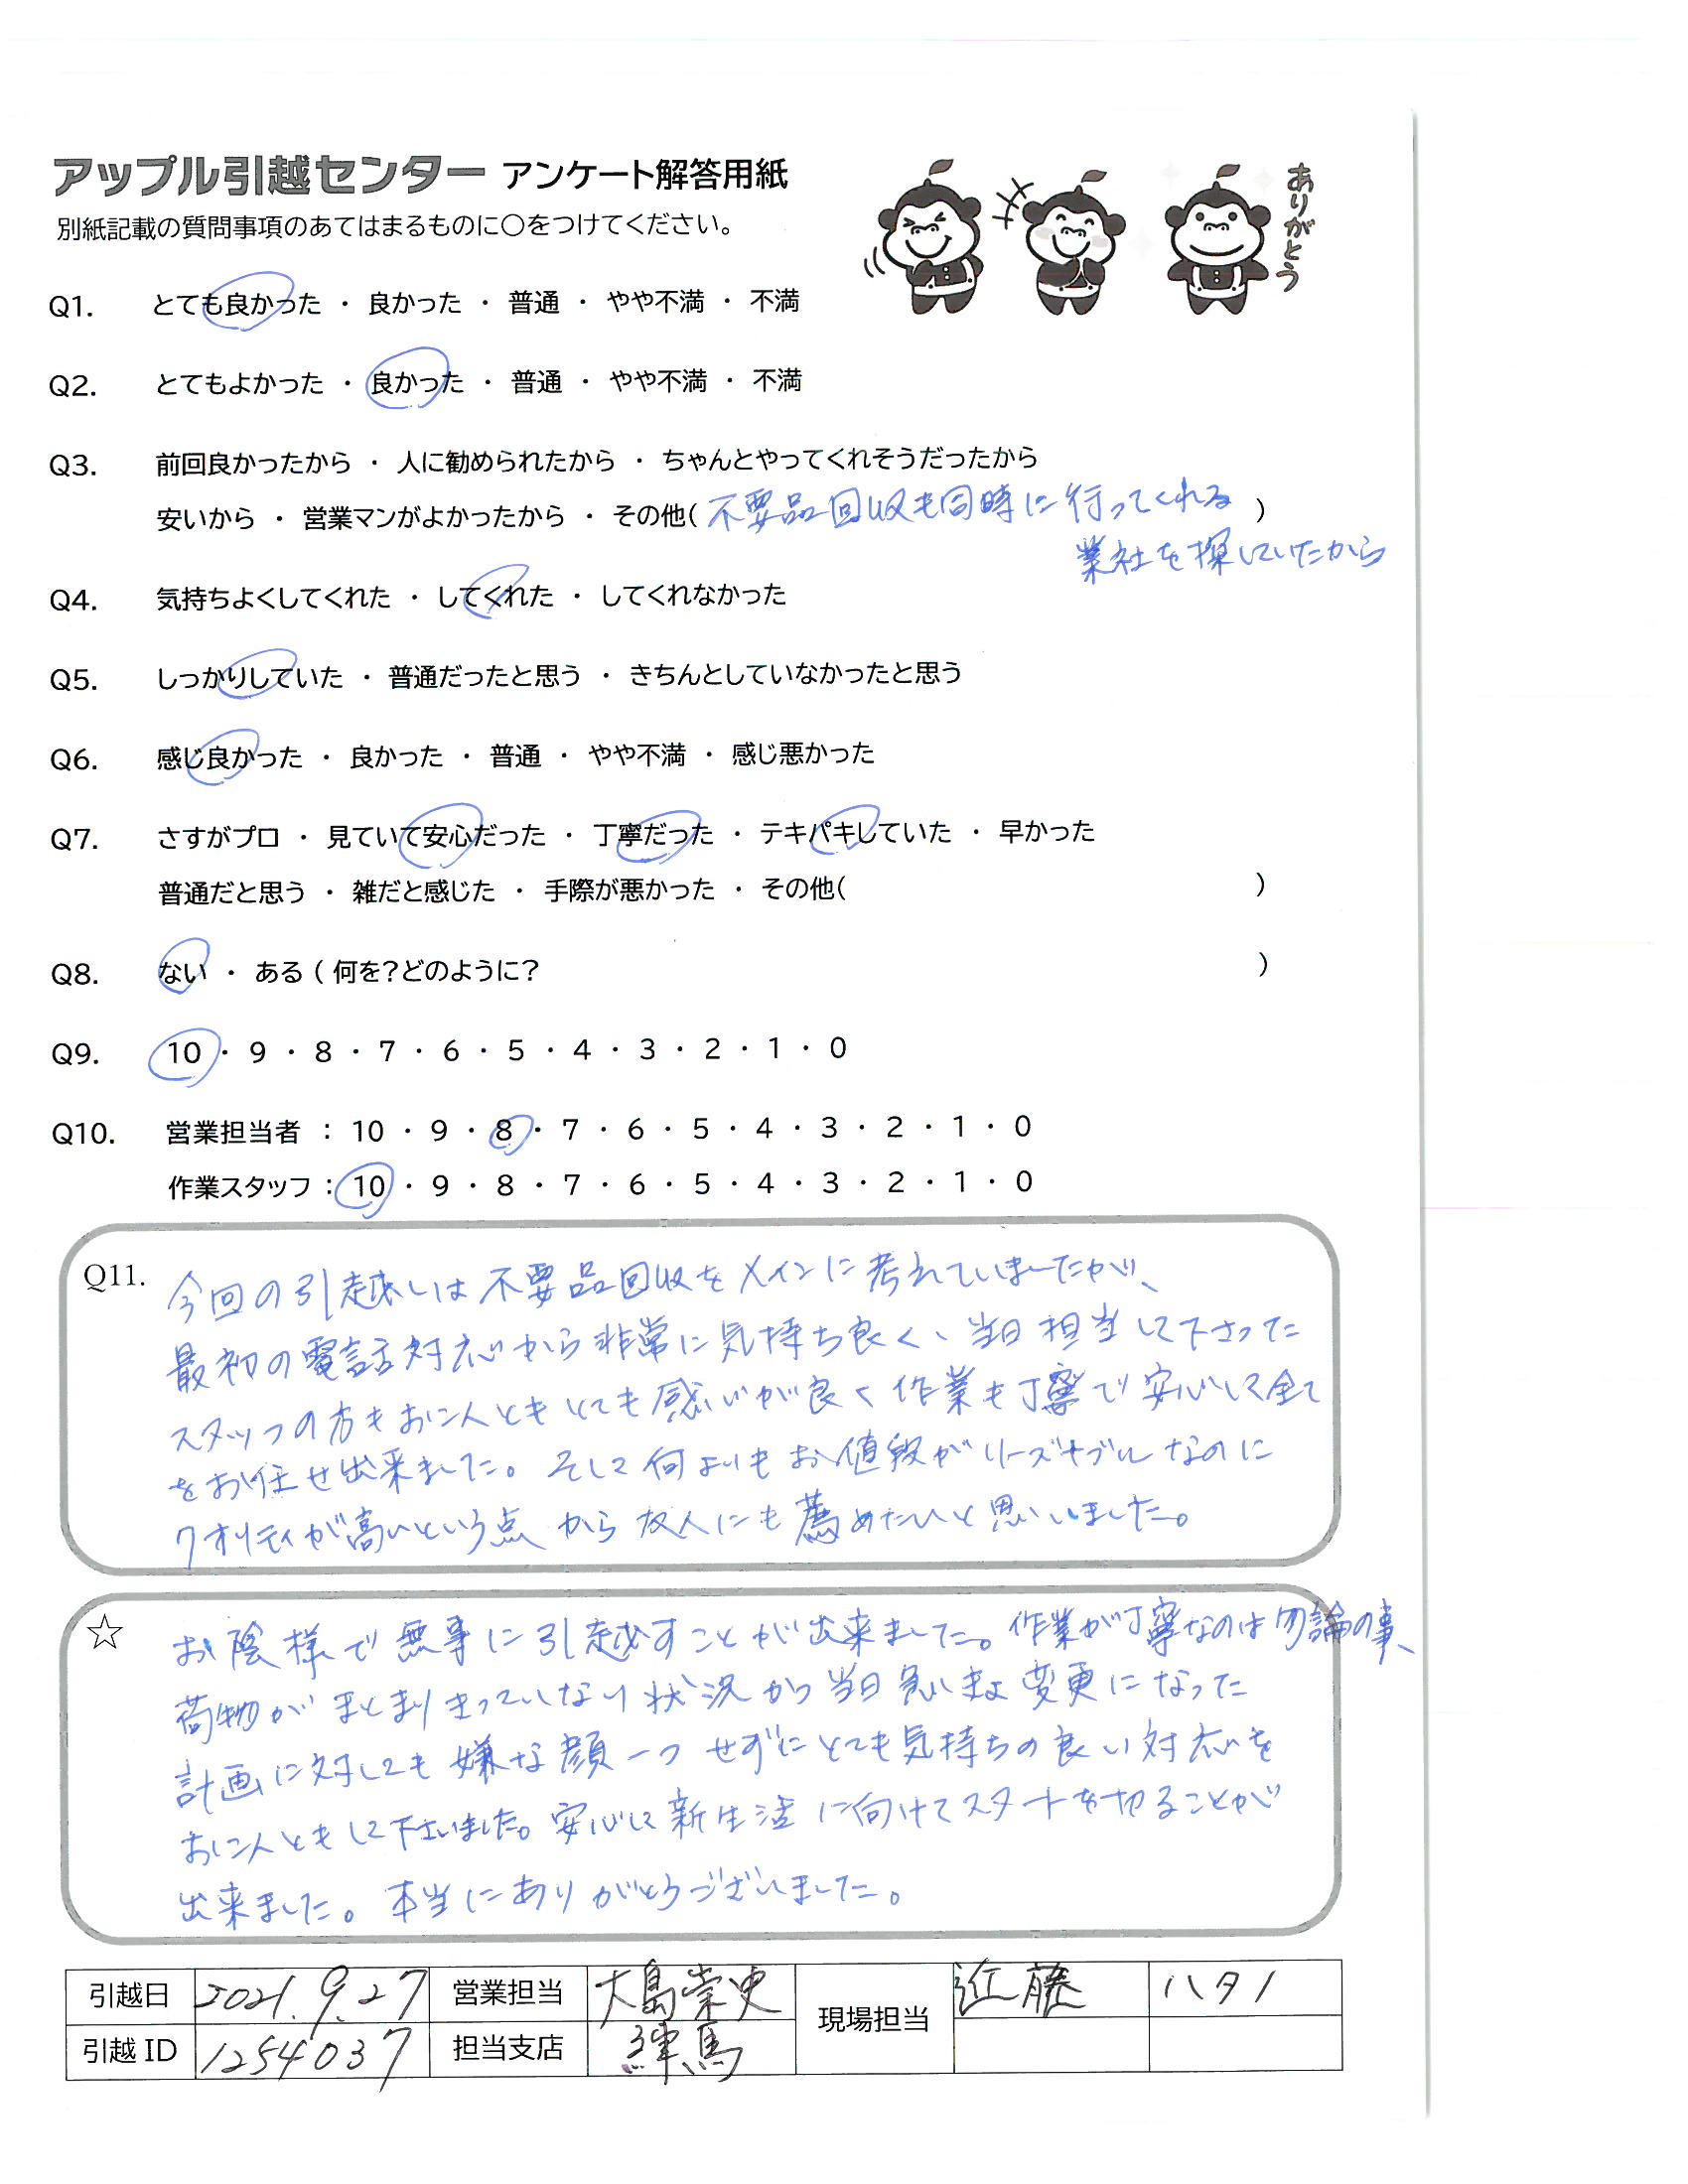 アップル引越センター アンケート解答用紙
別紙記載の質問事項のあてはまるものに○をつけてください。
ありがとう
Q1. とても良かった ・ 良かった ・ 普通 ・ やや不満 ・ 不満
Q2. とてもよかった ・ 良かった ・ 普通 ・ やや不満 ・ 不満
Q3. 前回良かったから ・ 人に勧められたから ・ ちゃんとやってくれそうだったから
安いから ・ 営業マンがよかったから ・ その他( 不要品回収も同時に行ってくれる )
業社を探していたから
Q4. 気持ちよくしてくれた ・ してくれた ・ してくれなかった
Q5. しっかりしていた ・ 普通だったと思う ・ きちんとしていなかったと思う
Q6. 感じ良かった ・ 良かった ・ 普通 ・ やや不満 ・ 感じ悪かった
Q7. さすがプロ ・ 見ていて安心だった ・ 丁寧だった ・ テキパキしていた ・ 早かった
普通だと思う ・ 雑だと感じた ・ 手際が悪かった ・ その他( )
Q8. ない ・ ある ( 何を?どのように? )
Q9. 10 ・ 9 ・ 8 ・ 7 ・ 6 ・ 5 ・ 4 ・ 3 ・ 2 ・ 1 ・ 0
Q10. 営業担当者 : 10 ・ 9 ・ 8 ・ 7 ・ 6 ・ 5 ・ 4 ・ 3 ・ 2 ・ 1 ・ 0
作業スタッフ : 10 ・ 9 ・ 8 ・ 7 ・ 6 ・ 5 ・ 4 ・ 3 ・ 2 ・ 1 ・ 0
Q11. 今回の引越しは不要品回収をメインに考えていましたが、
最初の電話対応から非常に気持ち良く、当日担当して下さった
スタッフの方もお二人ともとても感じが良く作業も丁寧で安心して全て
をお任せ出来ました。そして何よりもお値段がリーズナブルなのに
クオリティが高いという点から友人にも薦めたいと思いました。
☆ お陰様で無事に引越すことが出来ました。作業が丁寧なのは勿論の事、
荷物がまとまりきっていない状況から当日急きょ変更になった
計画に対しても嫌な顔一つせずにとても気持ちの良い対応を
お二人ともして下さいました。安心して新生活に向けてスタートを切ることが
出来ました。本当にありがとうございました。
引越日 2021.9.27 営業担当 大島崇史 現場担当 近藤 ハタノ
引越ID 1254037 担当支店 練馬